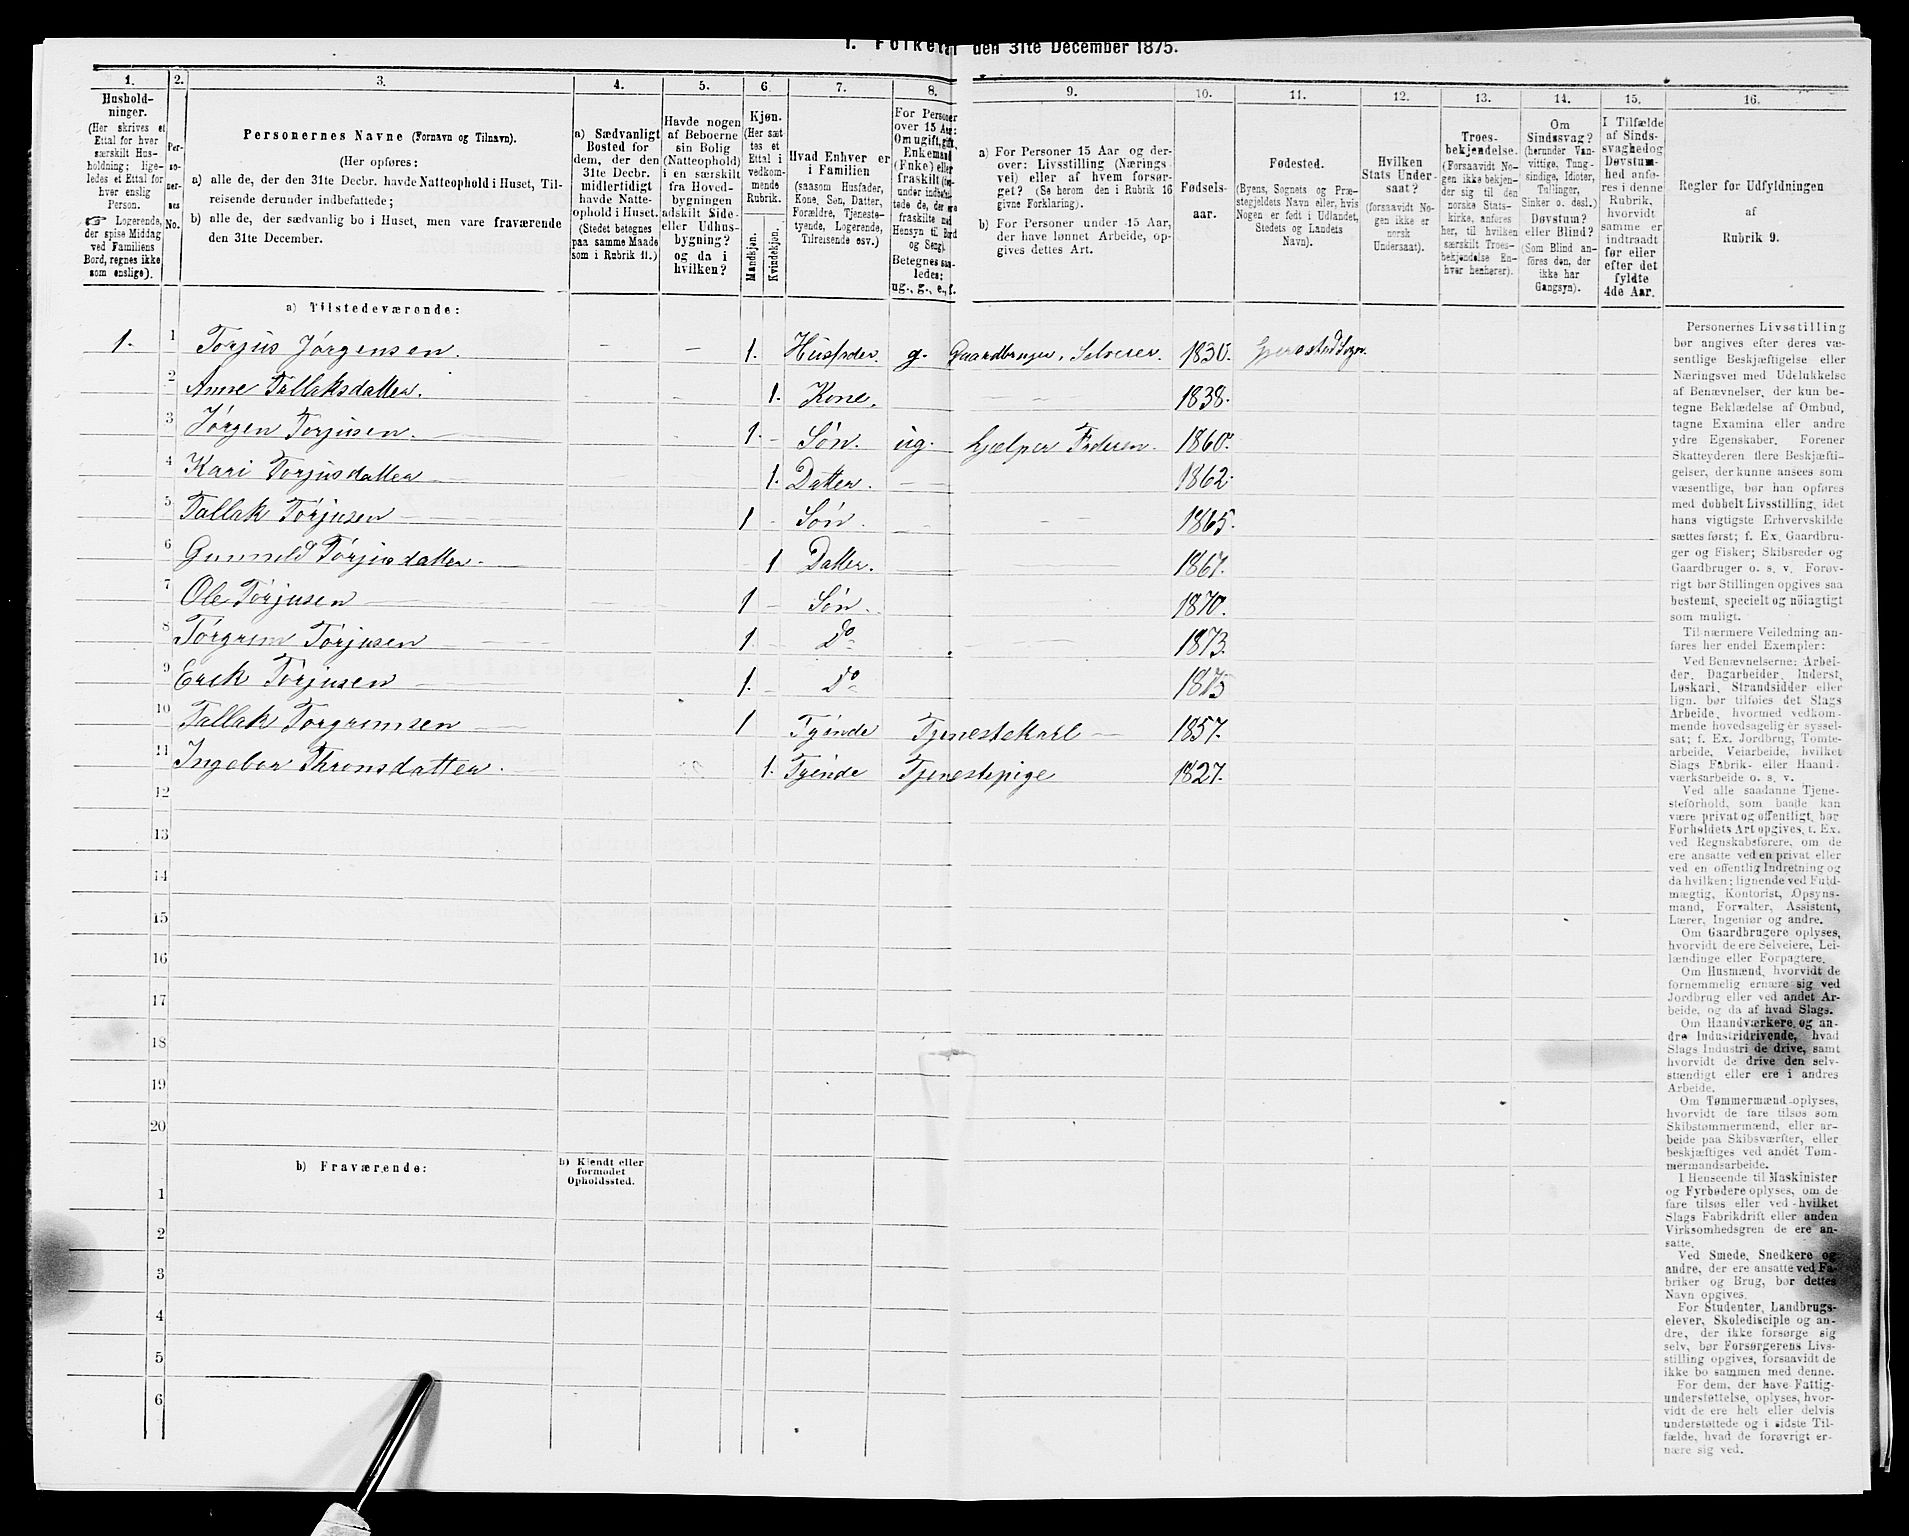 1. Folketal den 31te December 1875.
1. 2. 3. 4. 5. 6. 7. 8. 9. 10. 11. 12. 13. 14. 15. 16.
Hushold-
ninger.
(Her skrives et
Ettal for hver
særskilt Hus-
holdning; lige-
ledes et Ettal for
hver enslig
Person.
☞ Logerende,
der spise Middag
ved Familiens
Bord, regnes ikke
som enslige).
Per-
so-
ner-
nes
No.
Personernes Navne (Fornavn og Tilnavn).
(Her opføres:
a) alle de, der den 31te Decbr. havde Natteophold i Huset, Til-
reisende derunder indbefattede;
b) alle de, der sædvanlig bo i Huset, men vare fraværende
den 31te December.
a) Sædvanligt
Bosted for
dem, der den
31te Decbr.
midlertidigt
havde Natte-
ophold i Huset.
(Stedet betegnes
paa samme Maade
som i Rubrik 11.)
Havde nogen
af Beboerne
sin Bolig
(Natteophold)
i en særskilt
fra Hoved-
bygningen
adskilt Side-
eller Udhus-
bygning?
og da i
hvilken?
Kjøn.
(Her sæt-
tes et
Ettal i
vedkom-
mende
Rubrik.
Mandkjøn.
Kvindekjøn.
Hvad Enhver er
i Familien
(saasom Husfader,
Kone, Søn, Datter,
Forældre, Tjeneste-
tyende, Logerende,
Tilreisende osv.)
For Personer
over 15 Aar:
Om ugift, gift,
Enkemand
(Enke) eller
fraskilt (her-
under indbefat-
tede de, der ere
fraskilte med
Hensyn til Bord
og Seng).
Betegnes saa-
ledes:
ug., g., e., f.
a) For Personer 15 Aar og der-
over: Livsstilling (Nærings-
vei) eller af hvem forsør-
get? (Se herom den i Rubrik 16
givne Forklaring).
b) For Personer under 15 Aar,
der have lønnet Arbeide, op-
gives dettes Art.
Fødsels-
aar.
Fødested.
(Byens, Sognets og Præ-
stegjeldets Navn eller, hvis
Nogen er født i Udlandet,
Stedets og Landets
Navn).
Hvilken
Stats Under-
saat?
(forsaavidt No-
gen ikke er
norsk
Undersaat).
Troes-
bekjendelse.
(Forsaavidt No-
gen ikke bekjen-
der sig til den
norske Stats-
kirke, anføres
her, til hvilken
særskilt Troes-
bekjendelse En-
hver henhører).
Om
Sindssvag?
(herunder Van-
vittige, Tung-
sindige, Idioter,
Tullinger,
Sinker o. desl.)
Døvstum?
eller Blind?
(Som Blind an-
føres den, der
ikke har
Gangsyn).
I Tilfælde
af Sinds-
svaghed og
Døvstum-
hed anfø-
res i denne
Rubrik,
hvorvidt
samme er
indtraadt
før eller
efter det
fyldte
4de Aar.
Regler for Udfyldningen
af
Rubrik 9.
a) Tilstedeværende:
1. 1 Torjus Jörgensen. 1. Husfader. g. Gaardbruger, Selveier. 1830. Gjerrestad Sogn.
2 Anne Tallaksdatter. 1. Kone. 1838.
3 Jörgen Torjusen. 1. Sön. ug. hjælper Faderen. 1860.
4 Kari Torjusdatter 1. Datter. 1862.
5 Tallak Torjusen 1 Sön. 1865.
6 Gunnild Torjusdatter. 1 Datter. 1867.
7 Ole Torjusen 1 Sön. 1870.
8 Torgrim Torjusen 1. Do 1873.
9 Erik Torjusen 1. Do 1875
10 Tallak Torgrimsen 1 Tyende Tjenestekarl 1857.
11 Ingebor Thronsdatter. 1. Tyende Tjenestepige 1827.
12
13
14
15
16
17
18
19
20
b) Fraværende:
b) Kjendt eller
formodet
Opholdssted.
1
2
3
4
5
6
Personernes Livsstilling
bør angives efter deres væ-
sentlige Beskjæftigelse eller
Næringsvei med Udelukkelse
af Benævnelser, der kun be-
tegne Beklædelse af Ombud,
tagne Examina eller andre
ydre Egenskaber. Forener
Skatteyderen flere Beskjæfti-
gelser, der kunne ansees som
væsentlige, bør han opføres
med dobbelt Livsstilling, idet
hans vigtigste Erhvervskilde
sættes først; f. Ex. Gaardbru-
ger og Fisker; Skibsreder og
Gaardbruger o. s. v. Forøv-
rigt bør Stillingen opgives saa
bestemt, specielt og nöiagtigt
som muligt.
Til nærmere Veiledning an-
føres her endel Exempler:
Ved Benævnelserne: Arbei-
der, Dagarbeider, Inderst,
Løskari, Strandsidder eller
lign. bør tilføies det Slags
Arbeide, hvormed vedkom-
mende hovedsagelig er syssel-
sat; f. Ex. Jordbrug, Tomte-
arbeide, Veiarbeide, hvilket
Slags Fabrik- eller Haand-
værksarbeide o. s. v.
Ved alle saadanne Tjene-
steforhold, som baade kan
være privat og offentligt, bør
Forholdets Art opgives, t. Ex.
ved Regnskabsførere, om de
ere ansatte ved en privat eller
ved en offentlig Indretning og
da hvilken; lignende ved Fuld-
mægtig, Kontorist, Opsyns-
mand, Forvalter, Assistent,
Lærer, Ingeniør og andre.
Om Gaardbrugere oplyses,
hvorvidt de ere Selveiere, Lei-
lændinge eller Forpagtere.
Om Husmænd, hvorvidt de
fornemmelig ernære sig ved
Jordbrug eller ved andet Ar-
beide, og da af hvad Slags.
Om Haandværkere og an-
dre Industridrivende, hvad
Slags Industri de drive, samt
hvorvidt de drive den selv-
stændigt eller ere i andres
Arbeide.
Om Tømmermænd oplyses,
hvorvidt de fare tilsøs som
Skibstømmermænd, eller ar-
beide paa Skibsværfter, eller
beskjæftiges ved andet Tøm-
mermandsarbeide.
I Henseende til Maskinister
og Fyrbødere oplyses, om de
fare tilsøs eller ved hvilket
Slags Fabrikdrift eller anden
Virksomhedsgren de ere an-
satte.
Ved Smede, Snedkere og
andre, der ere ansatte ved Fa-
briker og Brug, bør dettes
Navn opgives.
For Studenter, Landbrugs-
elever, Skoledisciple og an-
dre, der ikke forsørge sig
selv, bør Forsørgerens Livs-
stilling opgives, forsaavidt de
ikke bo sammen med denne.
For dem, der have Fattig-
understøttelse, oplyses, hvor-
vidt de ere helt eller delvis
understøttede og i sidste Til-
fælde, hvad de forøvrigt er-
nære sig ved.